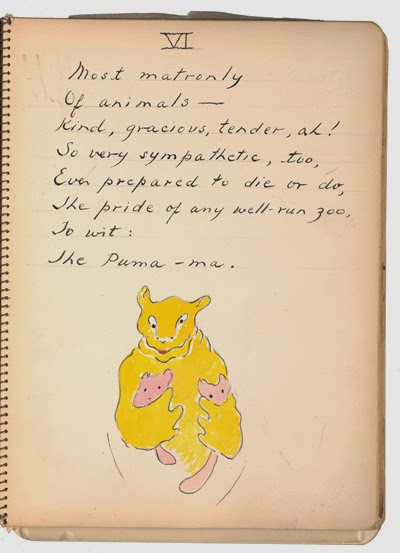 VI
Most matronly
Of animals —
Kind, gracious, tender, ah!
So very sympathetic, too,
Ever prepared to die or do,
The pride of any well-run zoo,
To wit:
The Puma-ma.